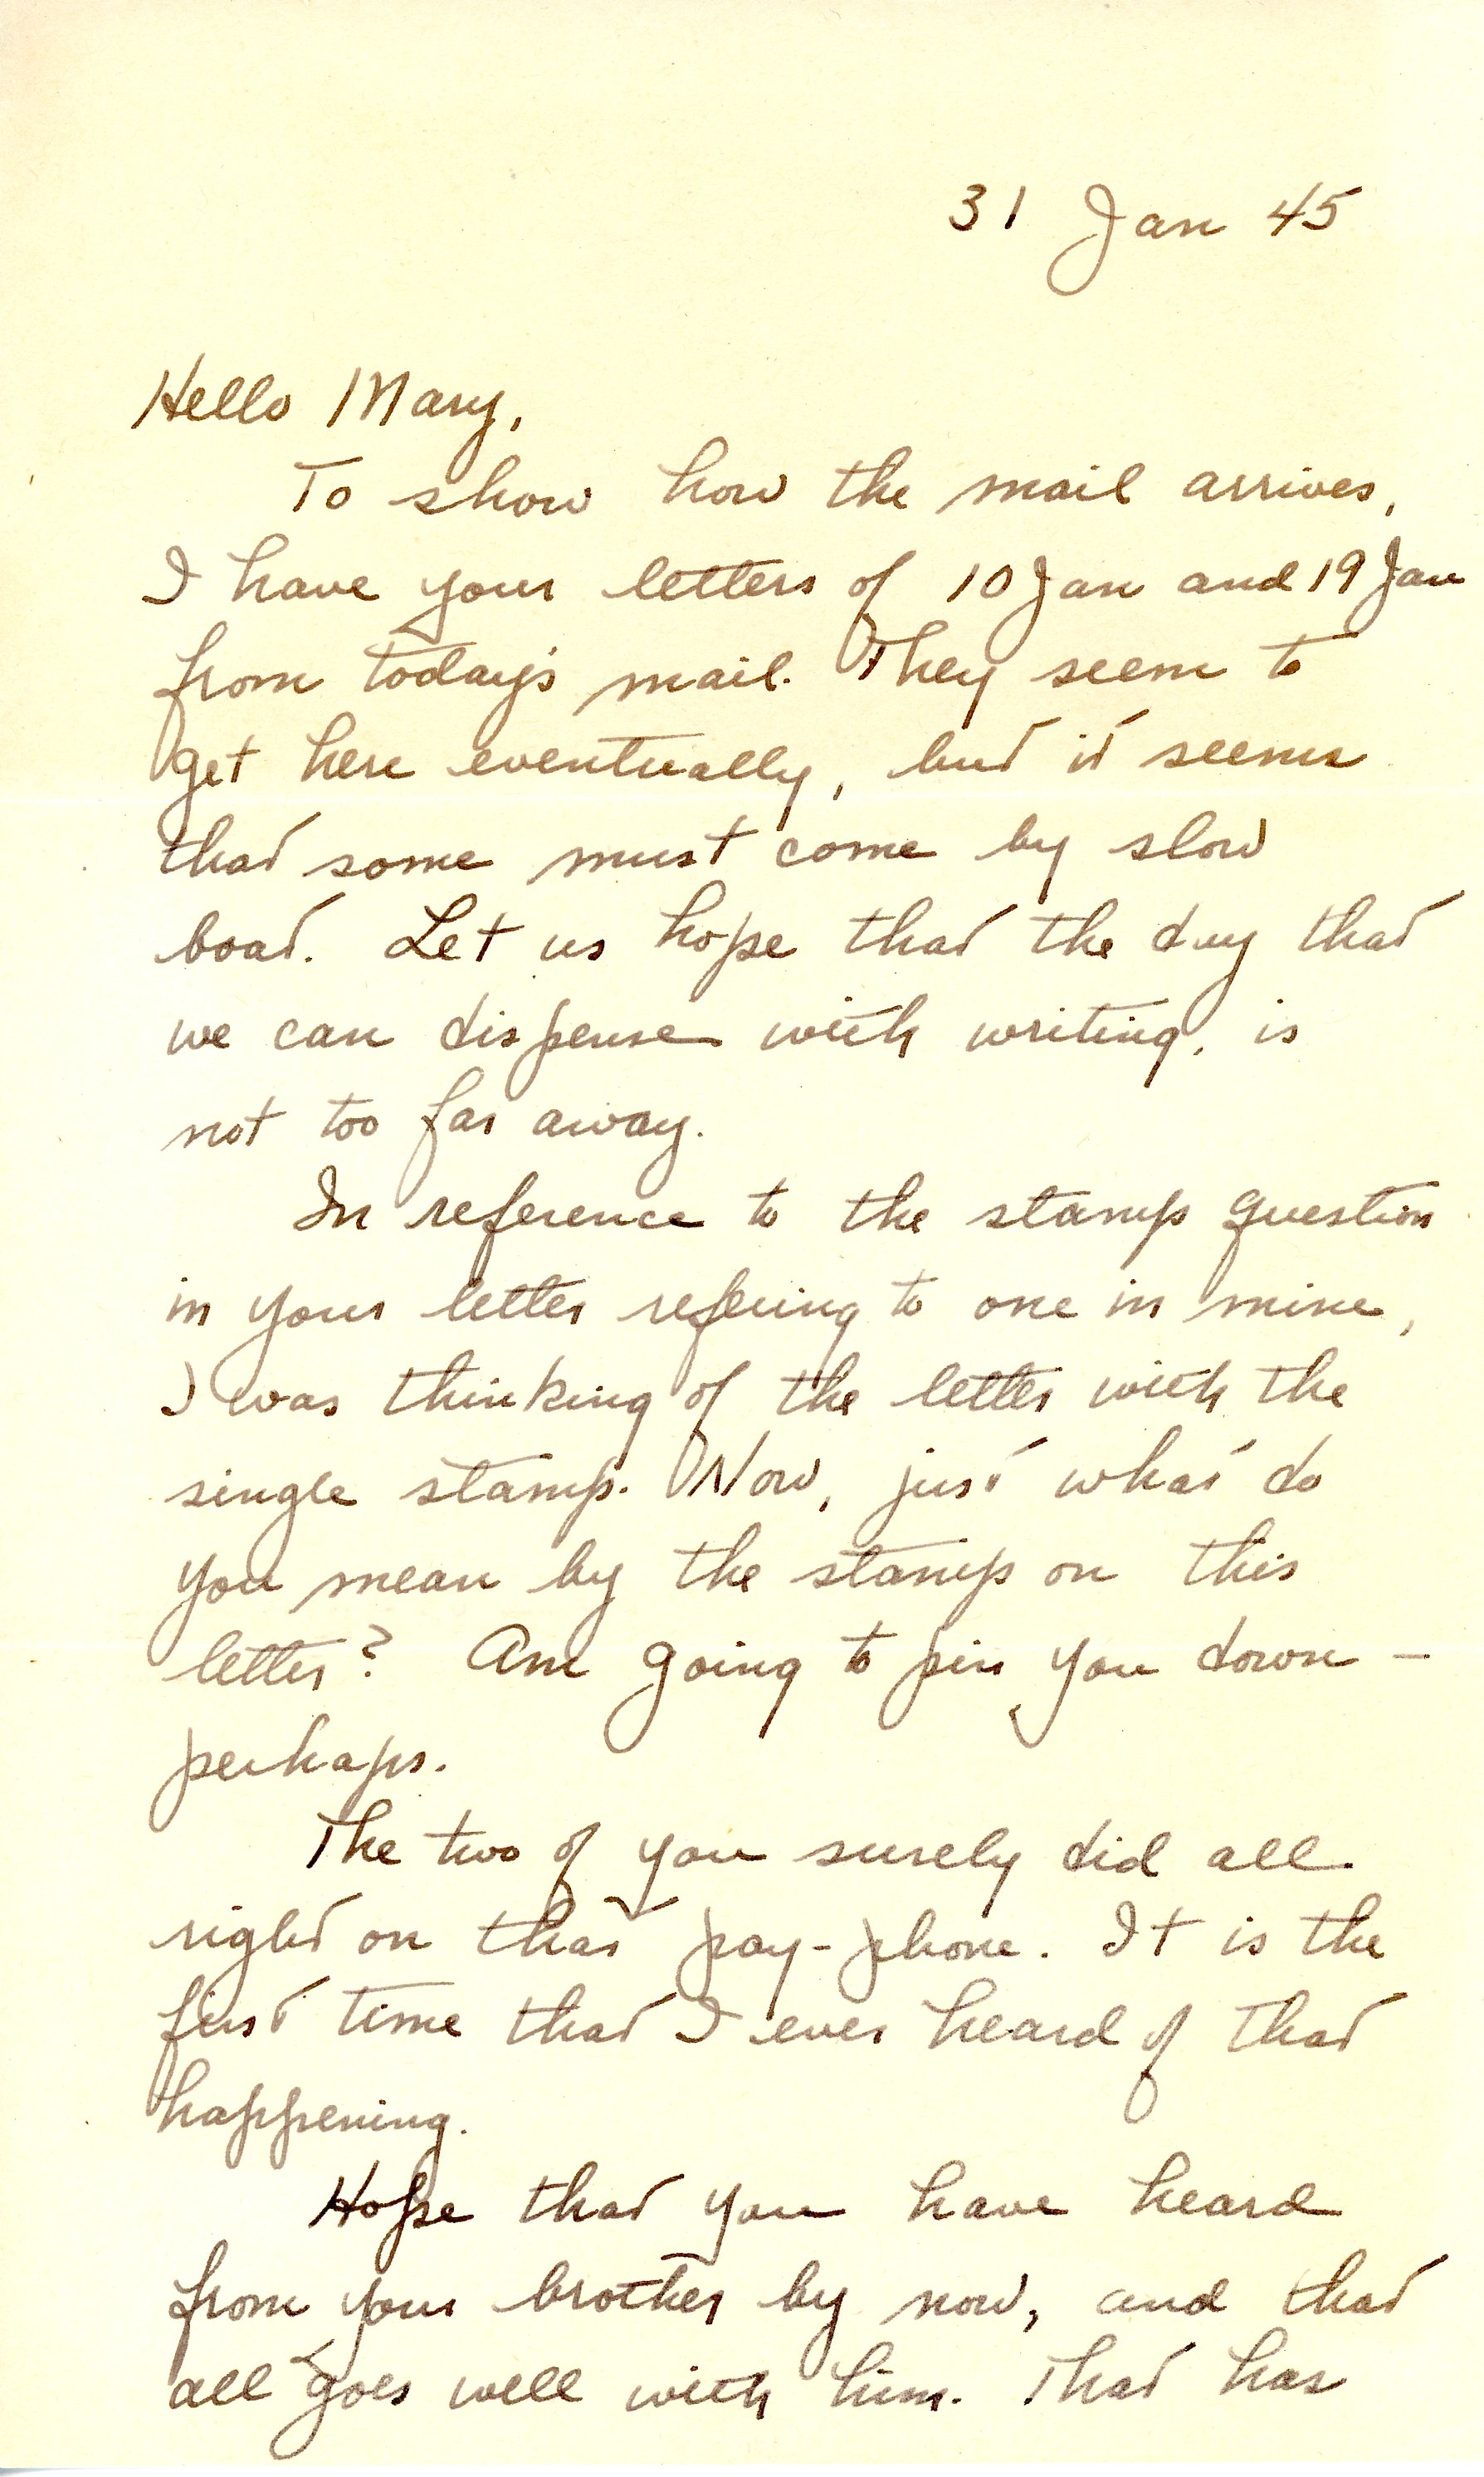 31 Jan 45
Hello Mary,
To show how the mail arrives,
I have your letters of 10 Jan and 19 Jan
from today's mail. They seem to
get here eventually, but it seems
that some must come by slow
boat. Let us hope that the day that
we can dispense with writing, is
not too far away.
In reference to the stamp question
in your letter refering to one in mine,
I was thinking of the letter with the
single stamp. Now, just what do
you mean by the stamp on this
letter? Am going to pin you down —
perhaps.
The two of you surely did all
right on that pay-phone. It is the
first time that I ever heard of that
happening.
Hope that you have heard
from your brother by now, and that
all goes well with him. That has